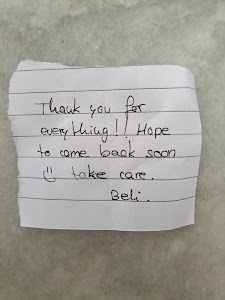 Thank you for
everything!! Hope
to come back soon
☺ take care.
Beli.